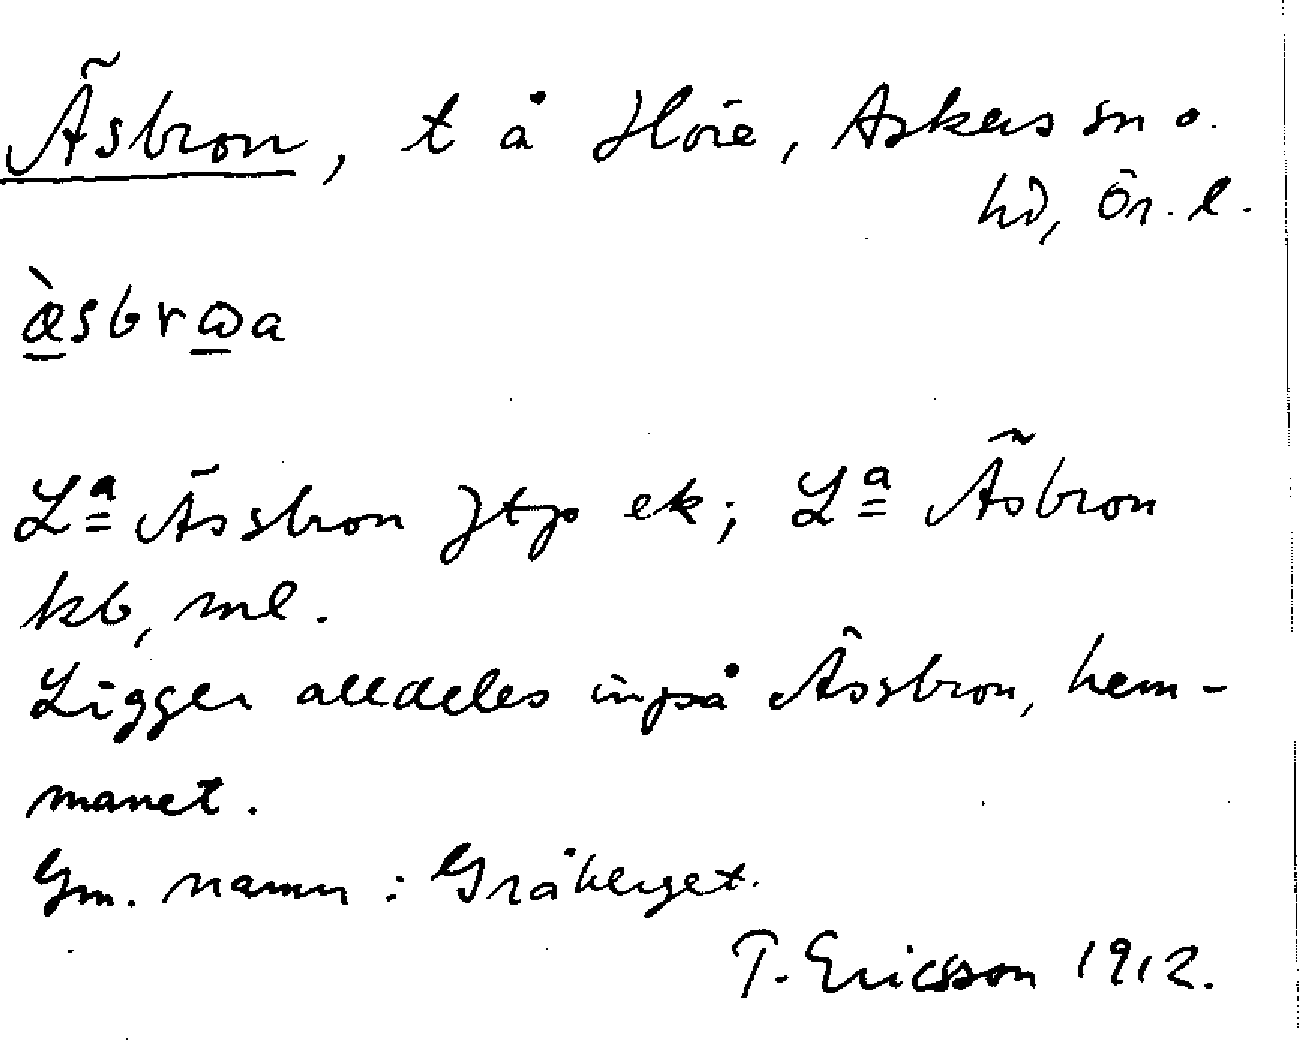 Äsbron, t å Hőie, Askers sn o.
hd, Ör. l.
æ̀sbrωa
Lª Ässbron Jtp ek; Lª Äsbron
kb, ml.
Ligger alldeles inpå Ässbron, hem-
manet.
Gm. namn: Gråberget.
T. Ericsson 1912.